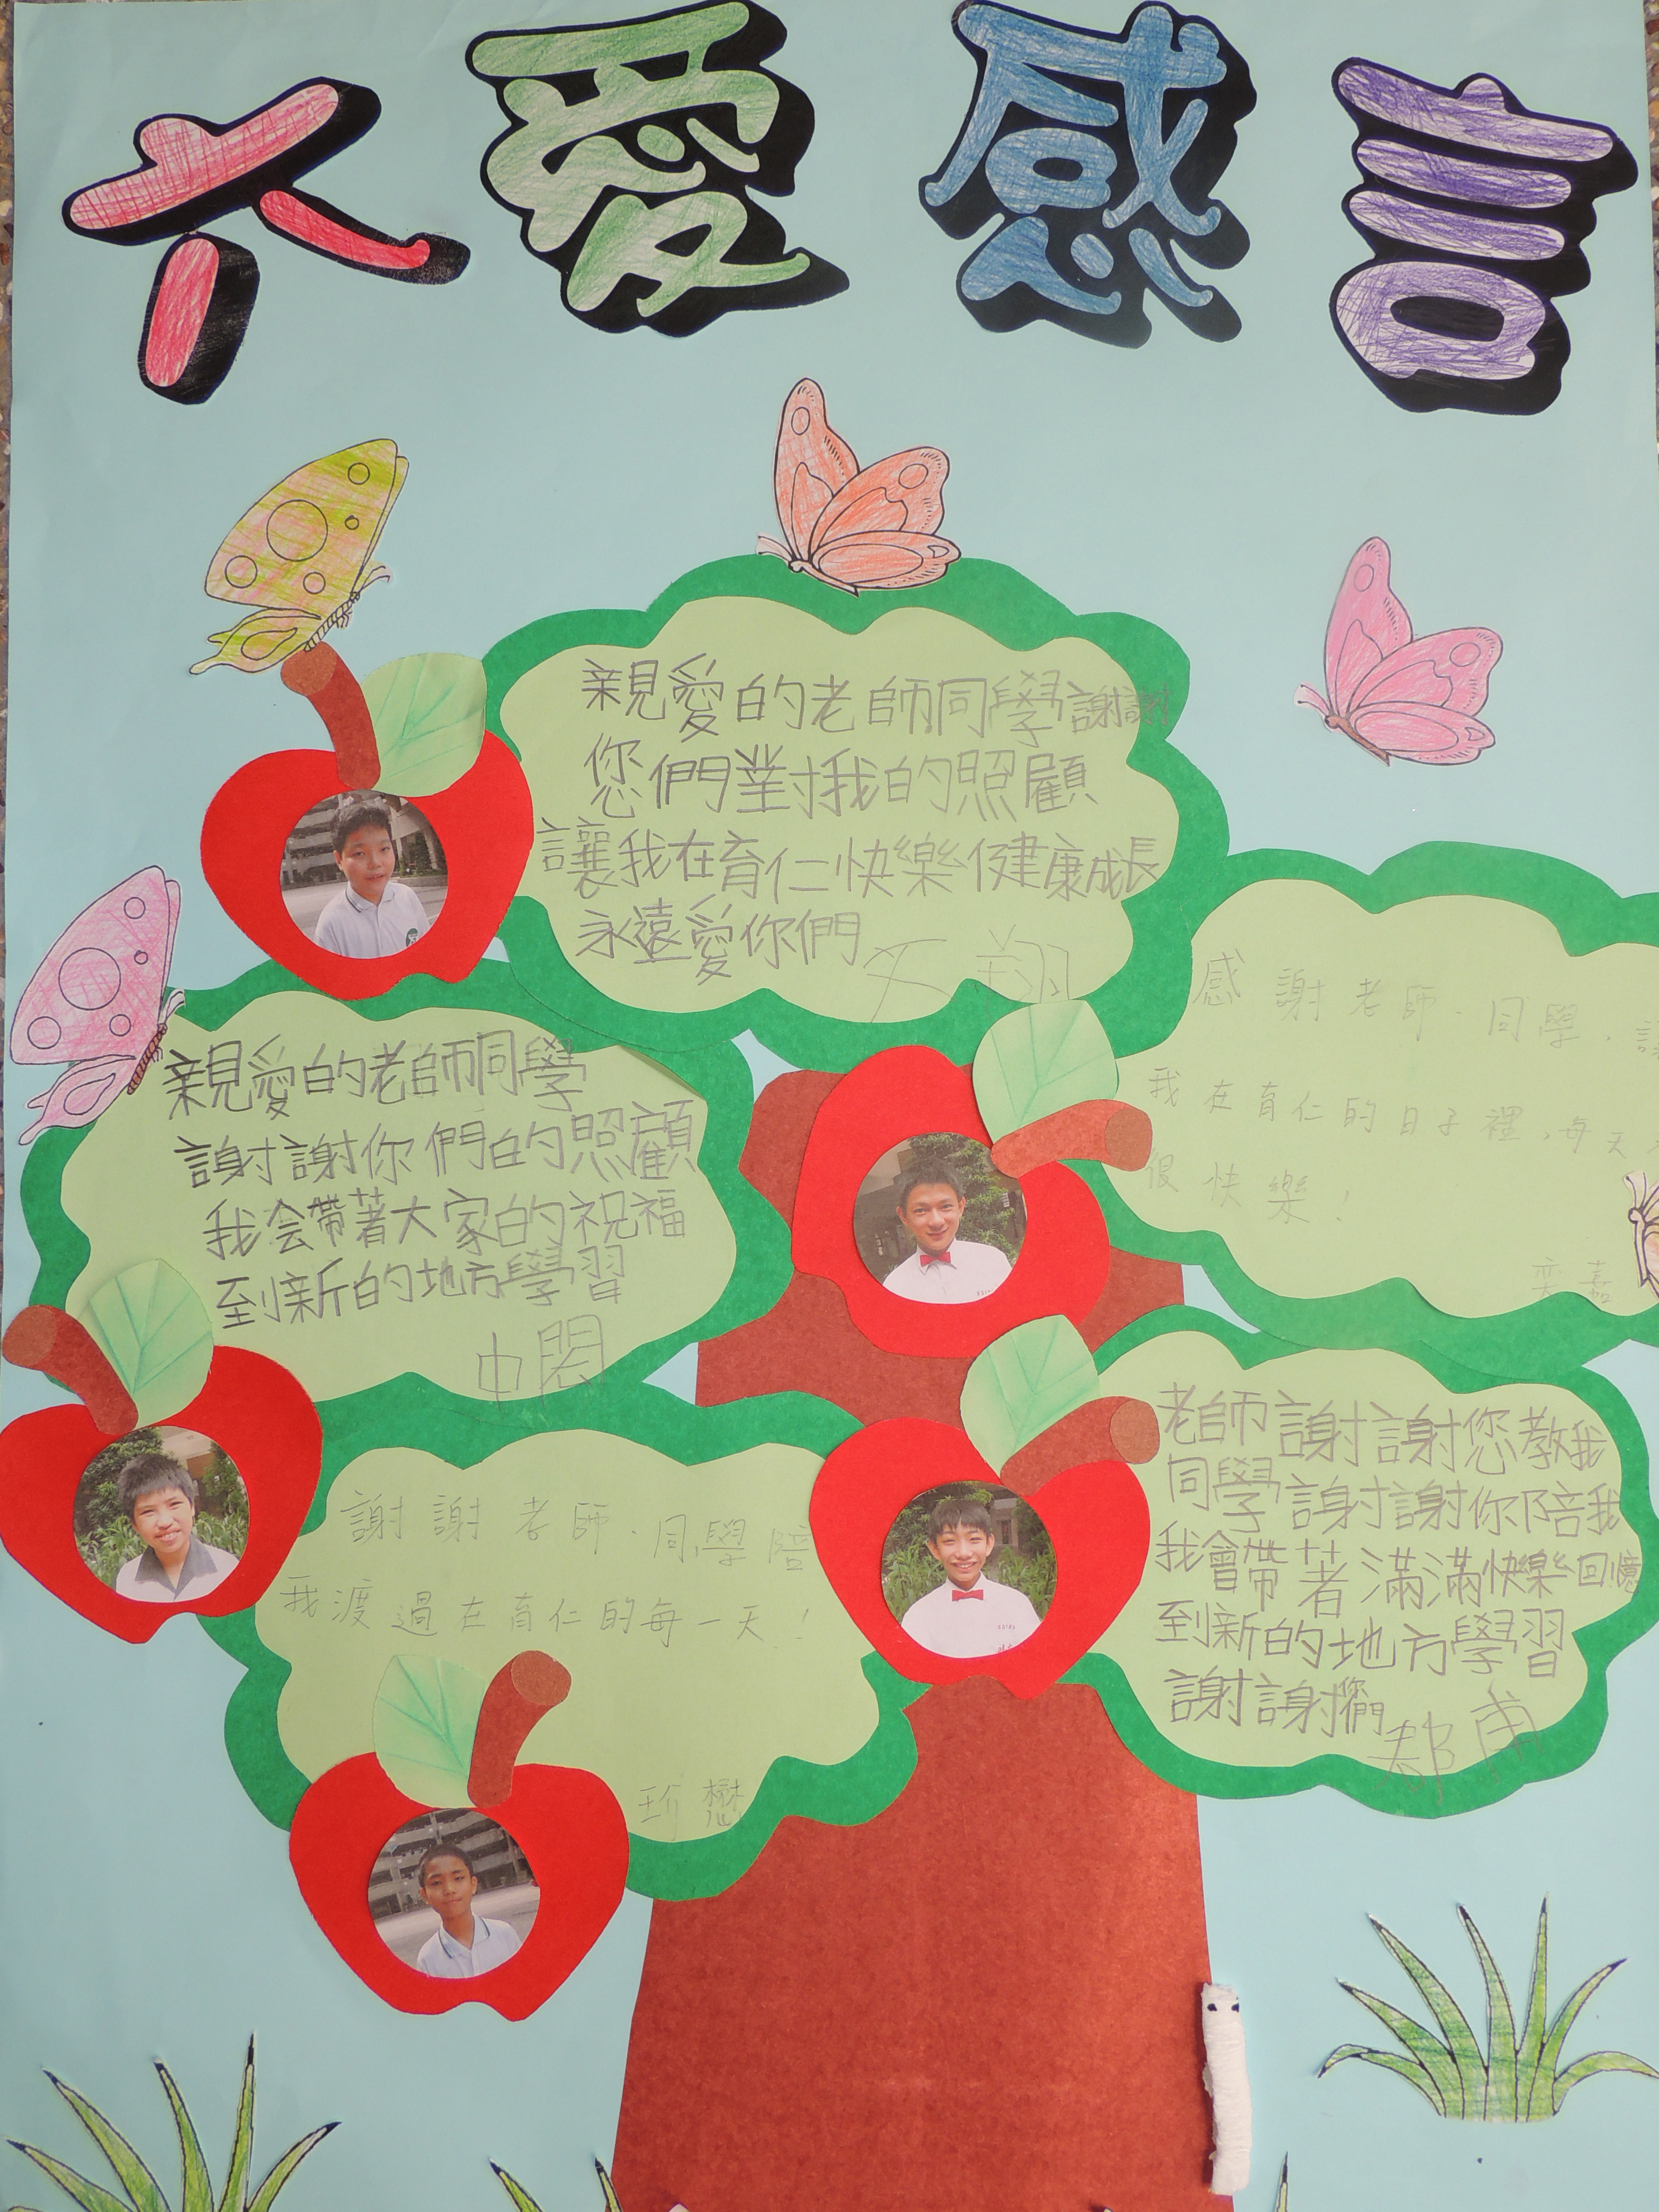 大愛感言
親愛的老師同學謝謝
您們對我的照顧
讓我在育仁快樂健康成長
永遠愛你們
文翔
感謝老師、同學,
我在育仁的日子裡,每天
很快樂!
奕嘉
親愛的老師同學
謝謝你們的照顧
我会帶著大家的祝福
到新的地方學習
中閎
老師謝謝您教我
同學謝謝你陪我
我會帶著滿滿快樂回憶
到新的地方學習
謝謝您們
郡甫
謝謝老師、同學陪
我渡過在育仁的每一天!
珍懋